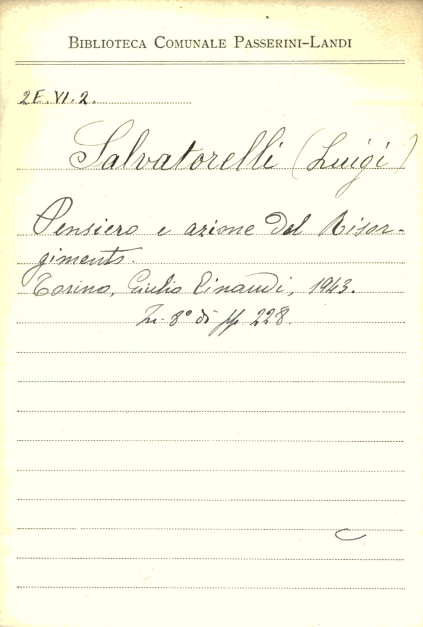 BIBLIOTECA COMUNALE PASSERINI-LANDI
2E.VI.2.
Salvatorelli (Luigi)
Pensiero e azione del Risor-
gimento.
Torino, Giulio Einaudi, 1943.
In-8° di pp 228.